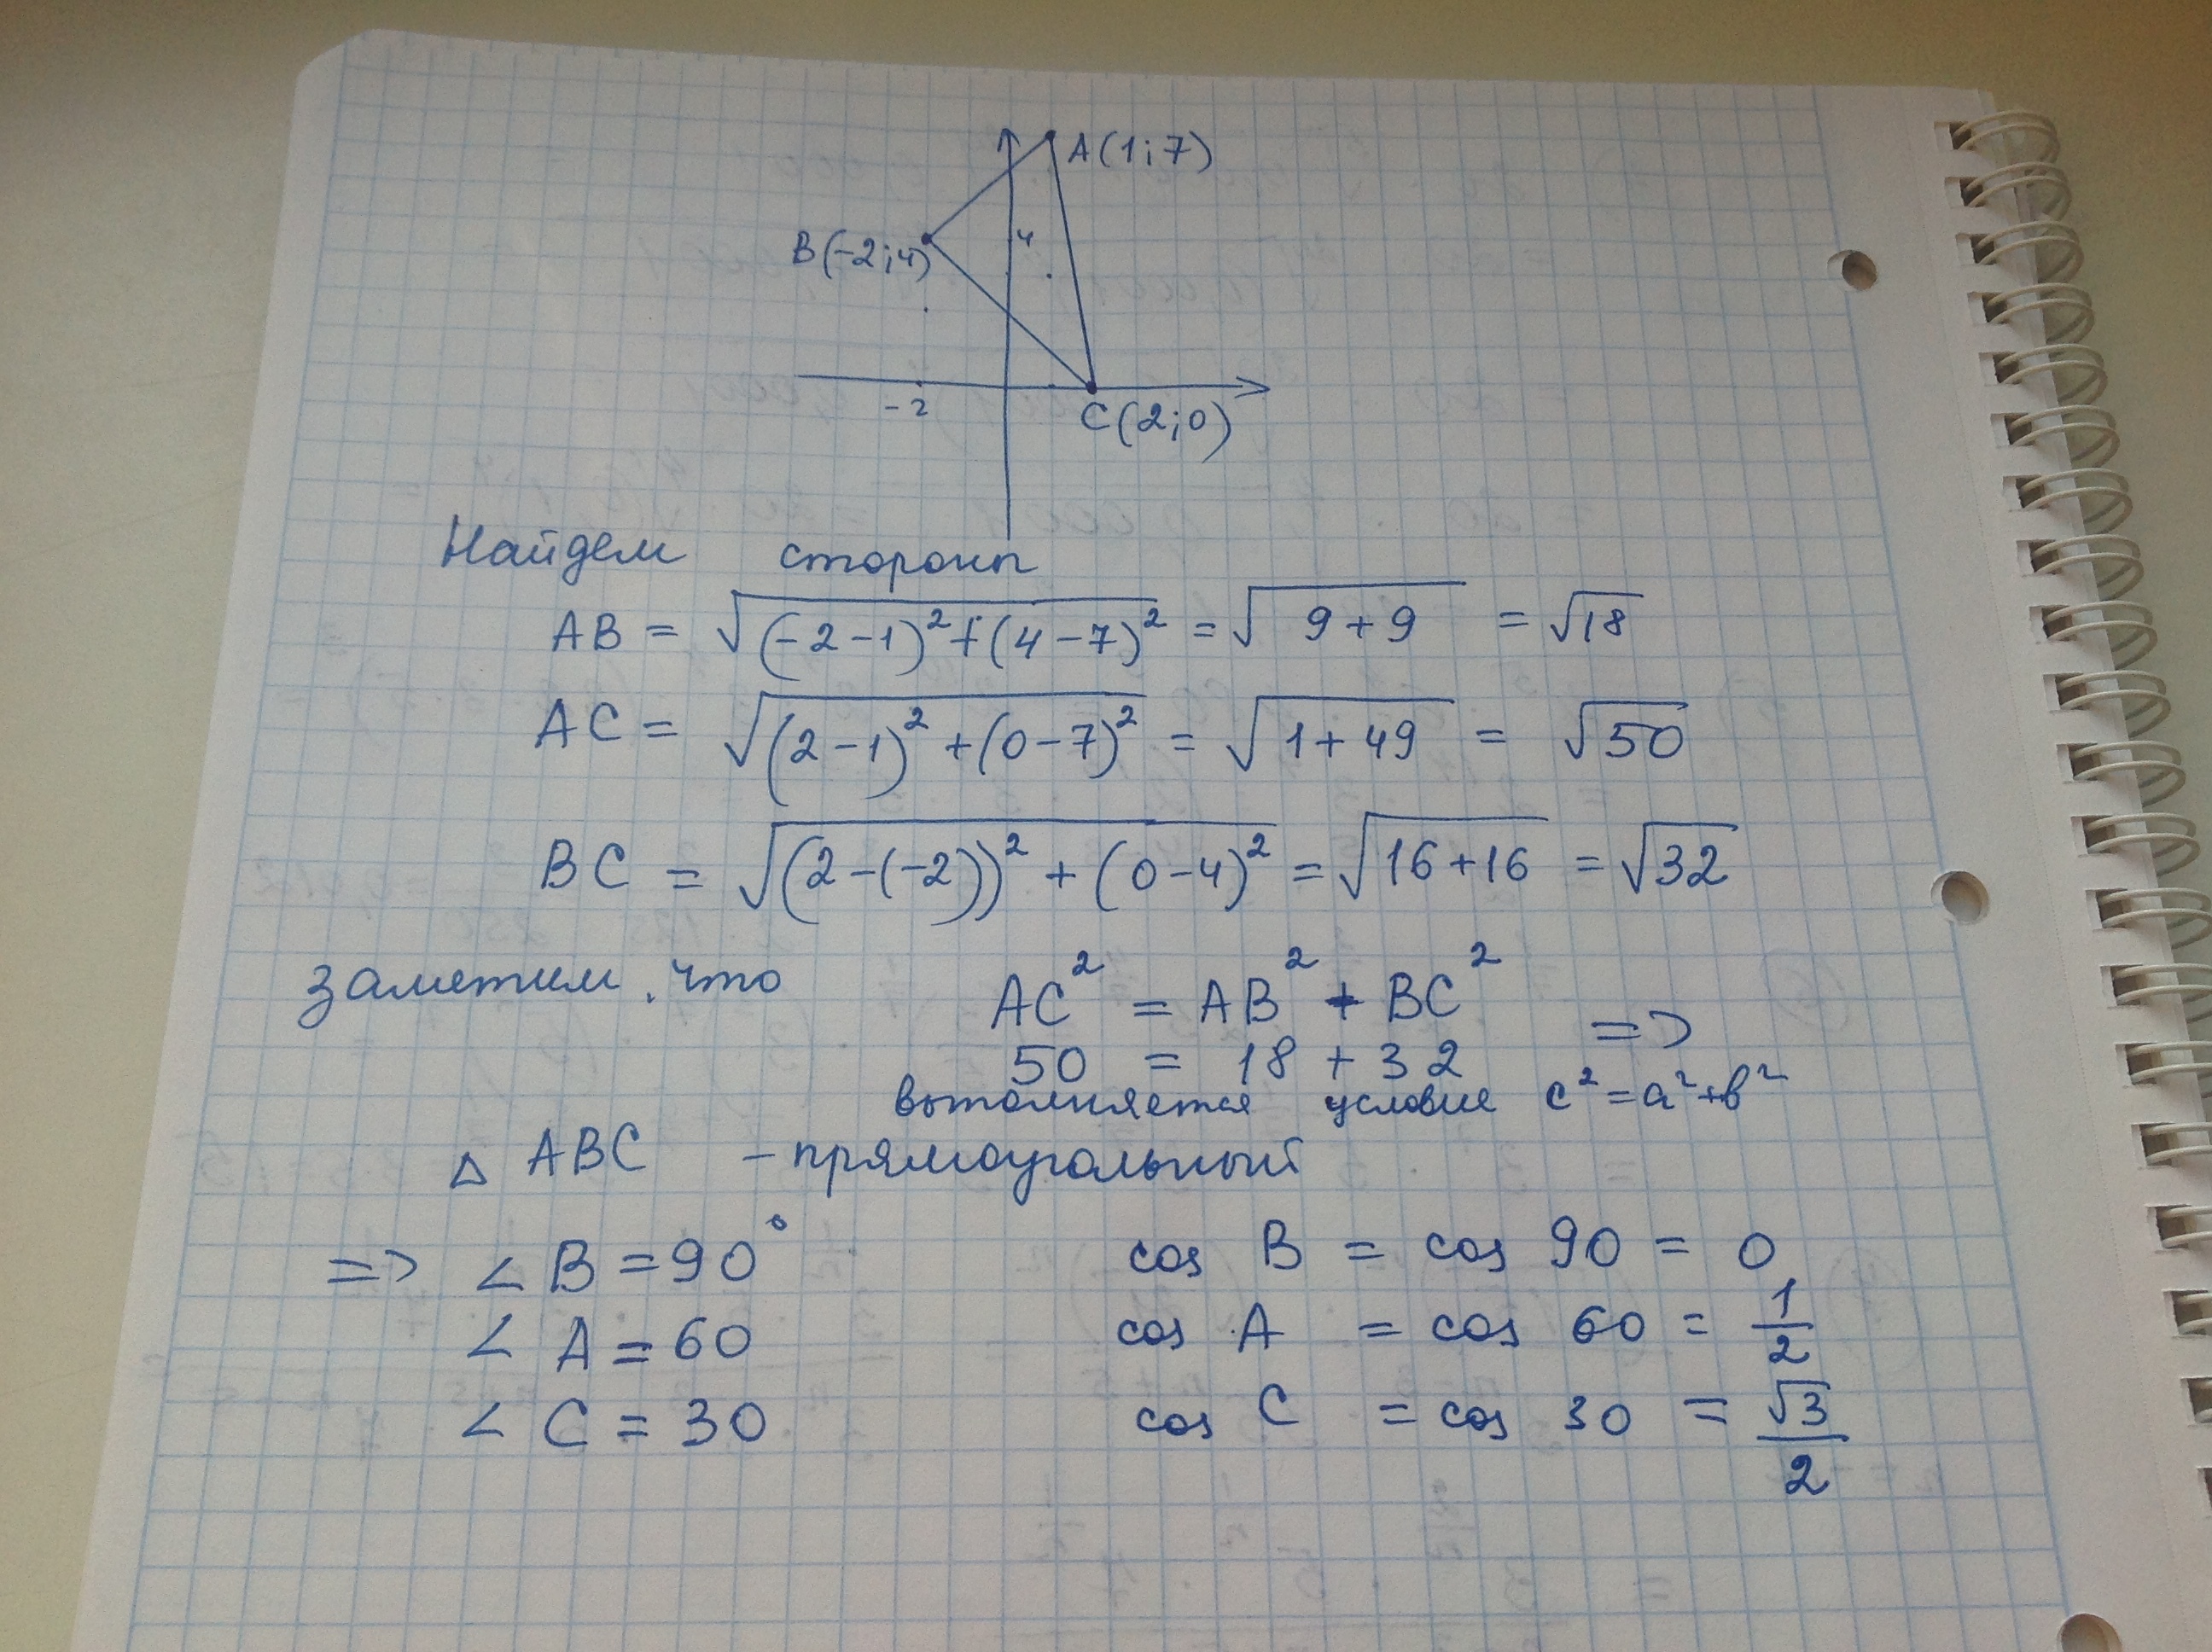 A(1;7)
B(-2;4)
4
-2
C(2;0)
Найдем стороны
AB = √((-2-1)²+(4-7)²) = √(9+9) = √18
AC = √((2-1)²+(0-7)²) = √(1+49) = √50
BC = √((2-(-2))²+(0-4)²) = √(16+16) = √32
Заметим, что AC² = AB² + BC² =>
50 = 18 + 32
выполняется условие c²=a²+b²
△ ABC - прямоугольный
=> ∠B = 90° cos B = cos 90 = 0
∠A = 60 cos A = cos 60 = 1/2
∠C = 30 cos C = cos 30 = √3/2